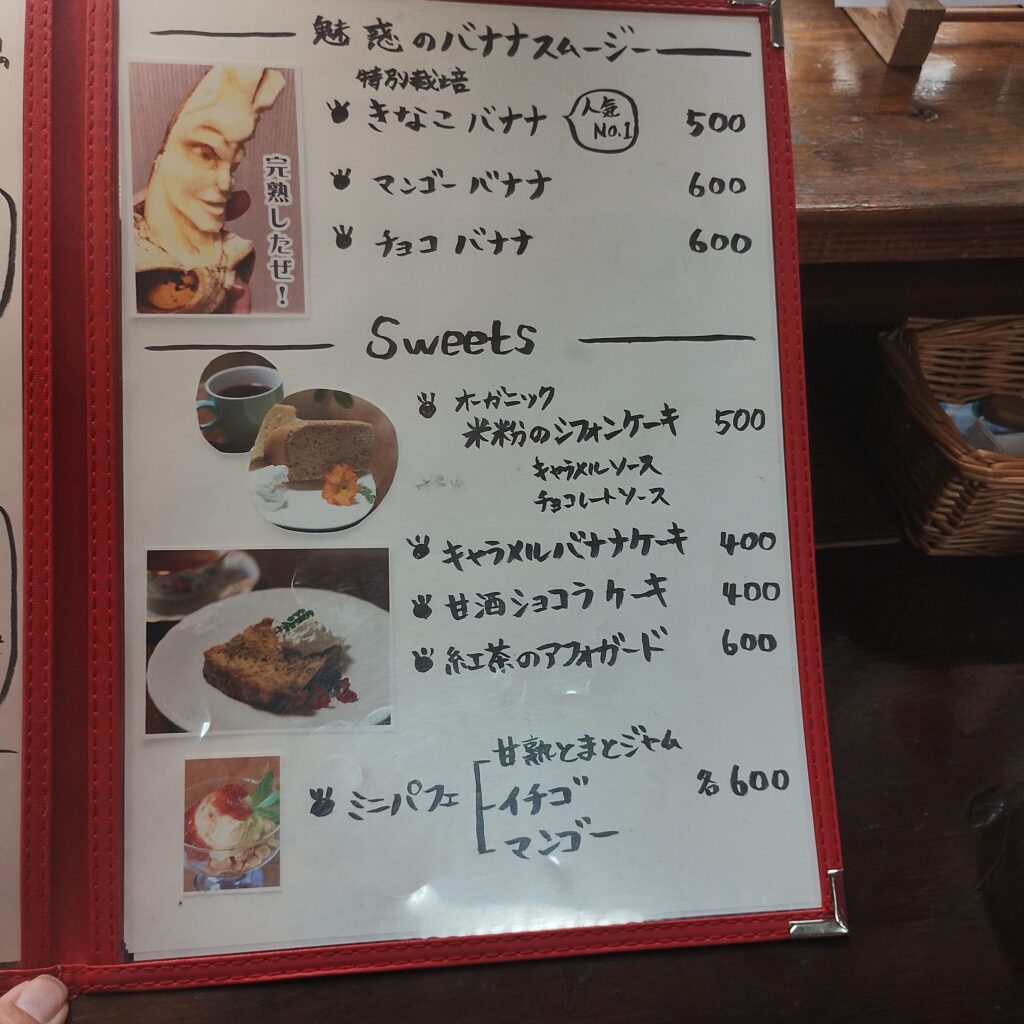 魅惑のバナナスムージー
特別栽培
きなこバナナ 人気 No.1 500
マンゴーバナナ 600
チョコバナナ 600
完熟したぜ!
Sweets
オーガニック
米粉のシフォンケーキ 500
キャラメルソース
チョコレートソース
キャラメルバナナケーキ 400
甘酒ショコラケーキ 400
紅茶のアフォガード 600
甘熟とまとジャム
ミニパフェ イチゴ 各600
マンゴー